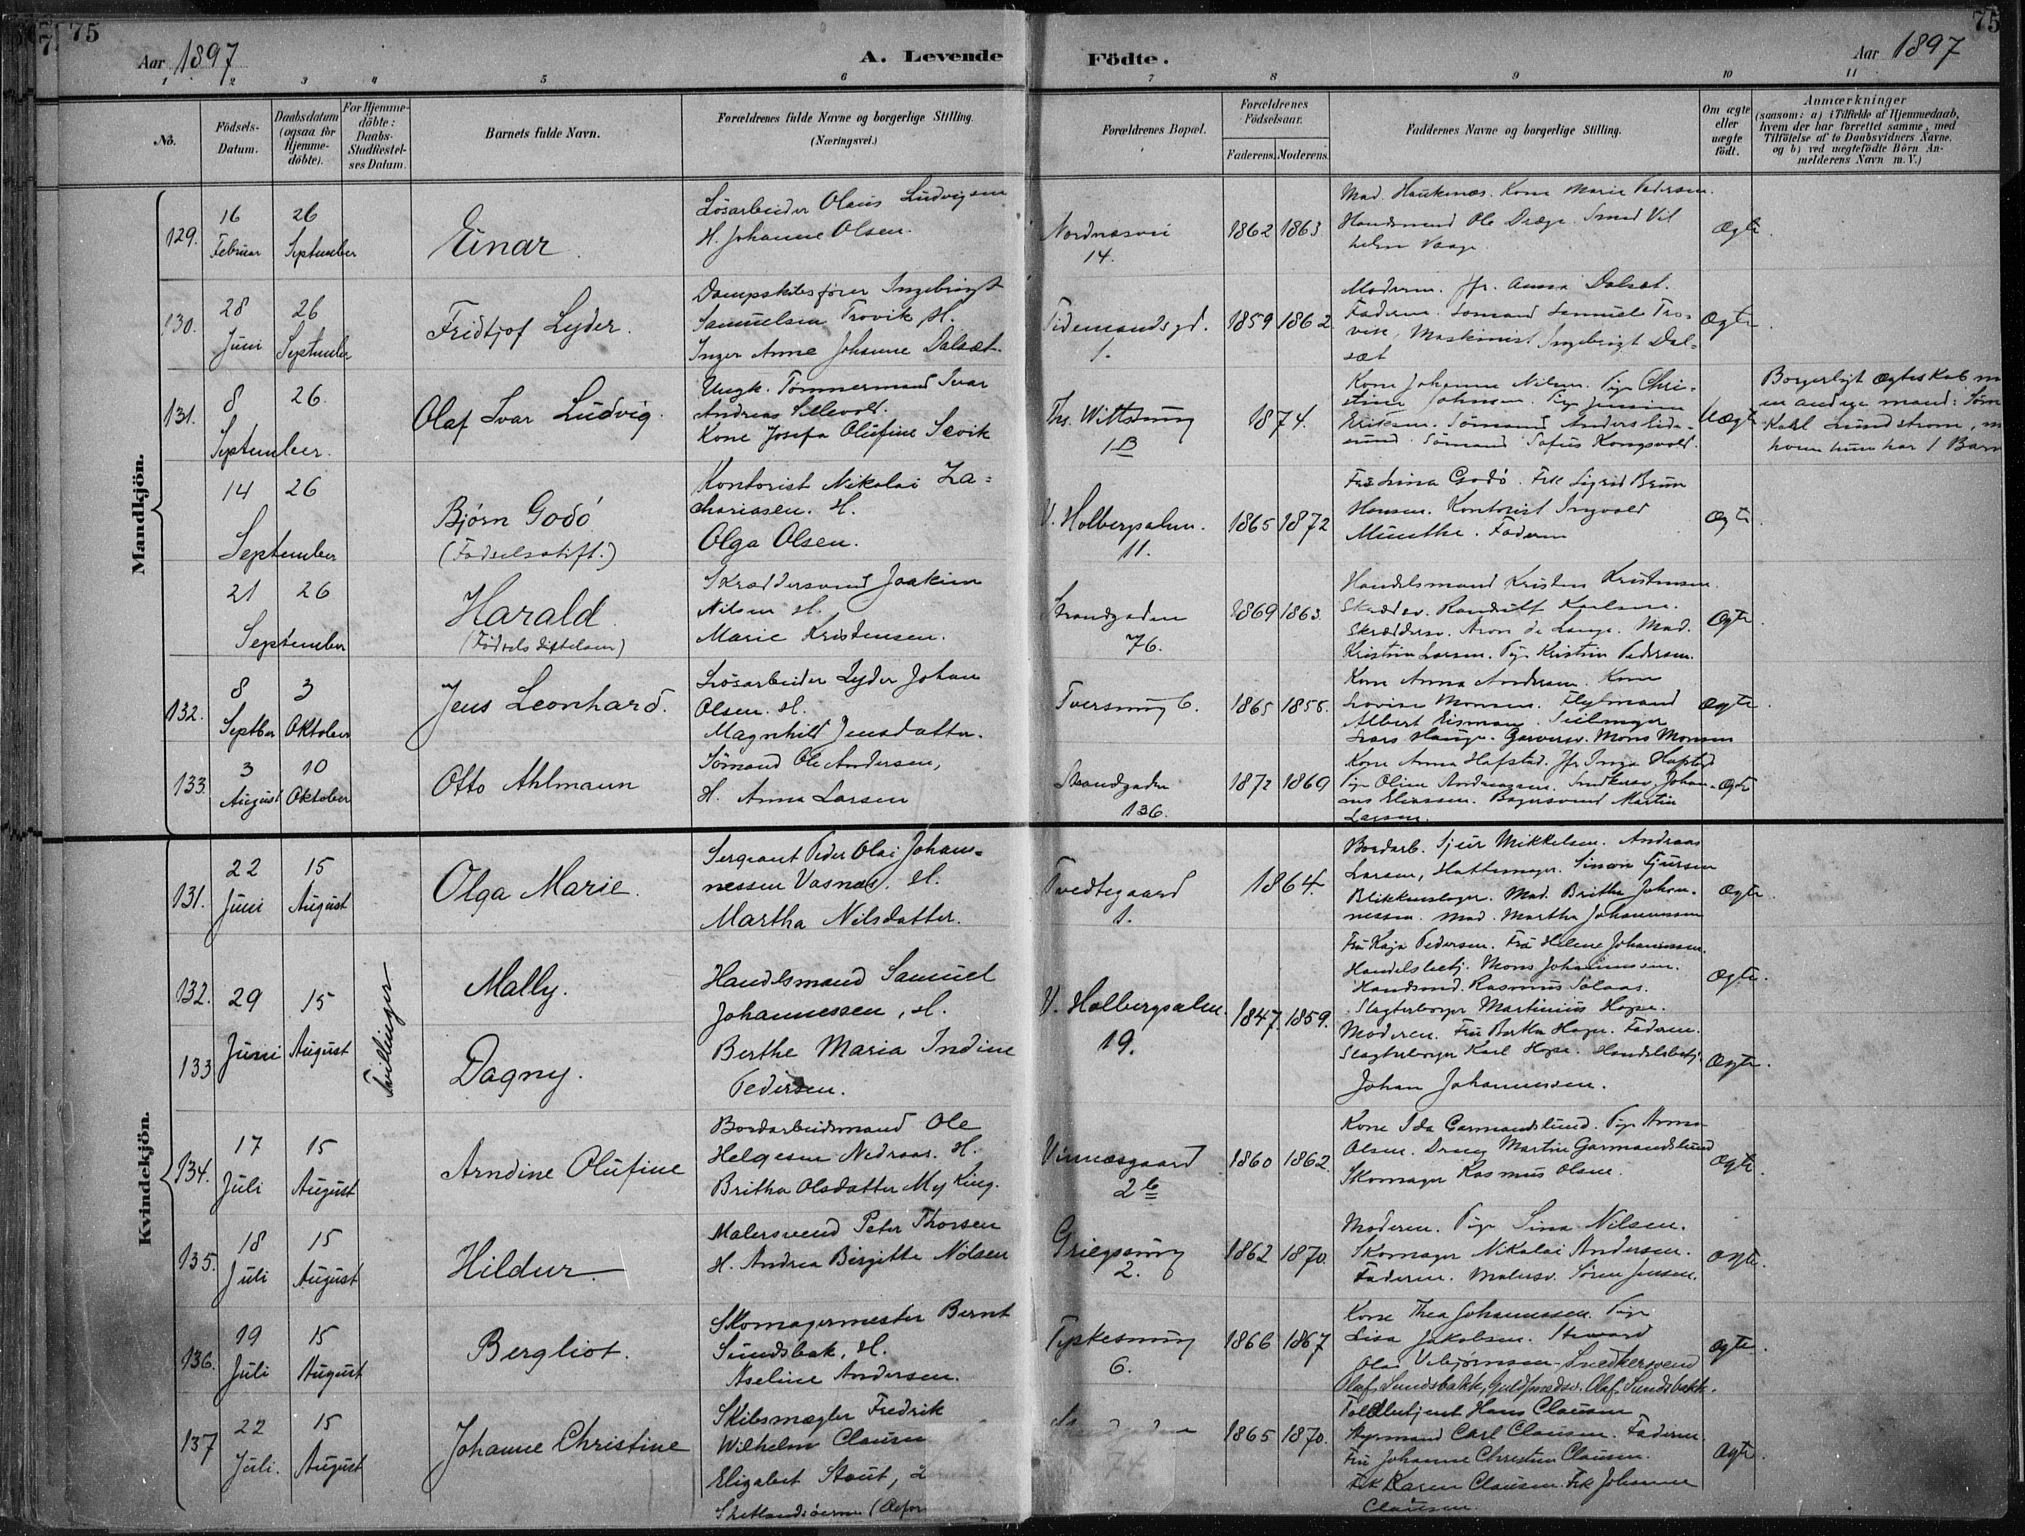 75
75
Aar 1897
A. Levende
Födte.
Aar 1897
1 2 3 4 5 6 7 8 9 10 11
No.
Födsels-Datum.
Daabsdatum (ogsaa for Hjemmedöbte).
For Hjemmedöbte: Daabs-Stadfæstelses Datum.
Barnets fulde Navn.
Forældrenes fulde Navne og borgerlige Stilling. (Næringsvei.)
Forældrenes Bopæl.
Forældrenes Födselsaar.
Faderens. Moderens.
Faddernes Navne og borgerlige Stilling.
Om ægte eller uægte födt.
Anmærkninger
(saasom: a) i Tilfælde af Hjemmedaab, hvem der har forrettet samme, med Tilföielse af to Daabsvidners Navne. og b) ved uægtefödte Börn Anmelderens Navn m. V.)
Mandkjön.
129. 16 Februar 26 September
Einar.
Løsarbeider Olaus Ludvigsen
H. Johanne Olsen.
Nordnæsvei 14.
1862 1863
Mad. Haukenæs. Kone Marie Pedersen.
Handsmand Ole Dræge. Smed Vil
helm Vaage.
Ægte.
130. 28 Juni 26 September
Fridtjof Lyder.
Dampskibsfører Ingebrigt
Samuelsen Trovik H.
Inger Anne Johanne Dalsæt.
Tidemandsgd. 1.
1859 1862
Moderen. Jfr. Anna Dalsæt.
Faderen. Sømand Samuel Tro-
vik. Maskinist Ingebrigt Dal-
sæt
Ægte.
131. 8 September. 26.
Olaf Ivar Ludvig.
Ungk. Tømmermand Ivar
Andreas Sellevold.
Kone Josefa Olufine Sævik
Ths. Wittsmug 1B
1874.
Kone Johanne Nilsen. Pige Chri-
stine Johnsen. Pige
Eriksen. Sømand Anders
Sømand Sofus Kongsvold.
Uægte
Borgerligt Ægteskab m
en anden mand: Søm
Karl Lundstrøm, m
hvem hun har 1 Barn
14 26 September
Bjørn Godö
(Fødselsstift.)
Kontorist Nikolai Za=
chariasen. H.
Olga Olsen.
V. Holbergsalm. 11.
1865 1872
Fru Lina Godö. Frk Sigrid Brun
Hansen. Kontorist Ingvald
Münthe. Faderen
Ægte.
21 26 September
Harald
(Födselsstiftelsen)
Skræddersvend Joakim
Nilsen H.
Marie Kristensen.
Strandgaden 76.
1869 1863
Handelsmand Kristen Kristensen.
Skrædder. Randulf Karlsen.
Skræddersv. Aron de Lange. Mad.
Kristine Larsen. Pige Kristine Pedersen.
Ægte.
132. 8 Septber 3 Oktober
Jens Leonhard.
Løsarbeider Lyder Johan
Olsen. H.
Magnhild Jensdatter.
Tversmug 6.
1865 1855.
Kone Anna Andersen. Kone
Lovise Monsen. Flytmand
Albert Eismann. Seilmager
Lars Hauge. Garversv. Mons Monsen
Ægte.
133. 3 August 10 Oktober
Otto Ahlmann
Sømand Ole Andersen,
H. Anna Larsen
Strandgaden 136.
1872 1869
Kone Anna Hafstad. Jfr Inga Hafstad
Pige Oline Andreassen. Snedkersv. Johan-
nes Eliassen. Bagersvend Martin
Larsen.
Ægte
Kvindekjön.
131. 22 Juni 15 August
Olga Marie.
Sergeant Peder Olai Johan-
nessen Vasnæs. H.
Martha Nilsdatter.
Tvedtegaard 1.
1864
Bordarb. Sjur Mikkelsen. Andreas
Larsen, Hattemager. Simon Sjursen
Blikkenslager. Mad. Brithe Johan-
nessen. Mad. Martha Johannessen
Ægte.
132. 29 Juni 15 August
Mally.
133
Dagny.
Tvillinger
Handelsmand Samuel
Johannessen, H.
Berthe Maria Indine
Pedersen.
V. Holbergsalm. 19.
1847. 1859.
Fru Kaja Pedersen. Fru Helene Johannessen.
Handelsbetj. Mons Johannessen.
Handsmd. Rasmus Solaas.
Slagterborger Martinius Hope.
Moderen. Fru Bertha Hope. Faderen.
Slagterborger Karl Hope. Handelsbetj.
Johan Johannessen.
Ægte.
Ægte.
134. 17 Juli 15 August
Arndine Olufine
Bordarbeidsmand Ole
Helgesen Nedraas. H.
Britha Olsdatter Myking.
Vinnæsgaard 2b
1860 1862.
Kone Ida Garmandslund. Pige Anna
Olsen. Dreng Martin Garmandslund
Skomager Rasmus Olsen.
Ægte.
135. 18 Juli 15 August
Hildur.
Malersvend Peter Thorsen
H. Andrea Birgitte Nilsen
Griegsmug 2.
1862 1870.
Moderen. Pige Sina Nilsen.
Skomager Nikolai Andersen.
Faderen. Malersv. Søren Jensen.
Ægte.
136. 19 Juli 15 August
Bergliot.
Skomagermester Bernt
Sundsbak, H.
Aseline Andersen.
Tyskesmug 6.
1866 1867
Kone Thea Johannessen. Pige
Lisa Jakobsen. Steward
Olai Vebjørnsen. Snedkersvend
Olaf Sundsbakk, Guldsmedsv. Olaf Sundsbakk.
Ægte.
137 22 Juli. 15 August
Johanne Christine
Skibsmægler Fredrik
Wilhelm Clausen
Elizabet Stout,
Shetlandsöerne
1865 1870.
Toldbetjent Hans Clausen
Styrmand Carl Clausen. Faderen.
Fru Johanne Christine Clausen.
Frk Karen Clausen. Frk Johanne
Clausen.
Ægte.